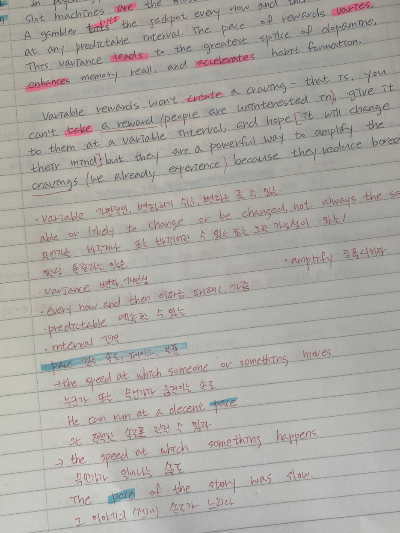 Slot machines are the
A gambler hits the jackpot every now and
at any predictable interval. The pace of rewards varies.
This variance leads to the greatest spike of dopamine,
enhances memory recall, and accelerates habit formation.
Variable rewards won't create a craving - that is, you
can't take a reward (people are uninterested in), give it
to them at a variable interval, and hope [it will change
their mind] but they are a powerful way to amplify the
cravings (we already experience) because they reduce
· variable 가변적인, 변화하기 쉬운, 변화를 줄 수 있는
able or likely to change or be changed, not always the
· variance 변화, 가변성
· amplify 증폭시키다.
· every now and then 이따금, 때때로, 가끔
· predictable 예측할 수 있는
· interval 간격
pace 속도, 페이스, 보폭
→ the speed at which someone or something moves.
누군가 또는 무언가가 움직이는 속도
He can run at a decent pace
→ the speed at which something happens.
무언가가 일어나는 속도
The pace of the story was slow.
그 이야기의 속도가 느리다